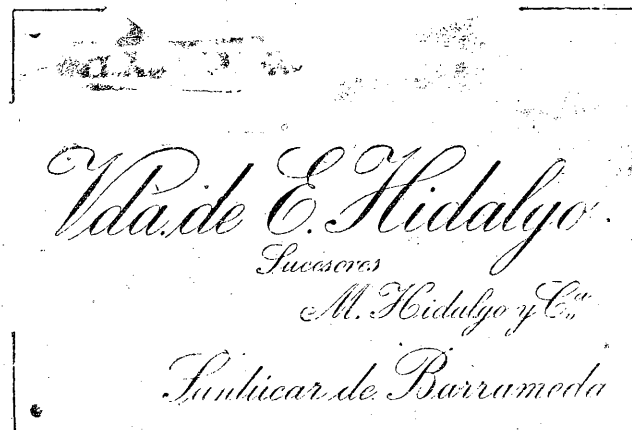 Vda. de E. Hidalgo.
Sucesores
M. Hidalgo y C.ª
Sanlúcar de Barrameda